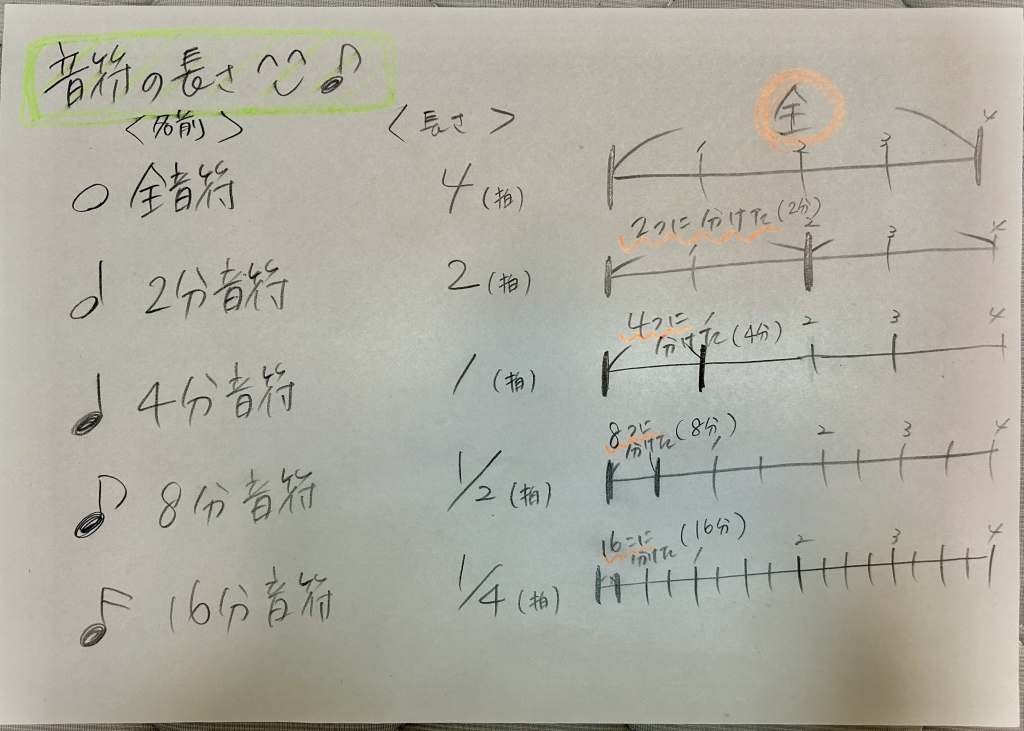 音符の長さ
〈名前〉 〈長さ〉 全
全音符 4(拍) 1 2 3 4
2つに分けた(2分)
2分音符 2(拍) 1 2 3 4
4つに分けた(4分)
4分音符 1(拍) 1 2 3 4
8つに分けた(8分)
8分音符 1/2(拍) 1 2 3 4
16こに分けた(16分)
16分音符 1/4(拍) 1 2 3 4